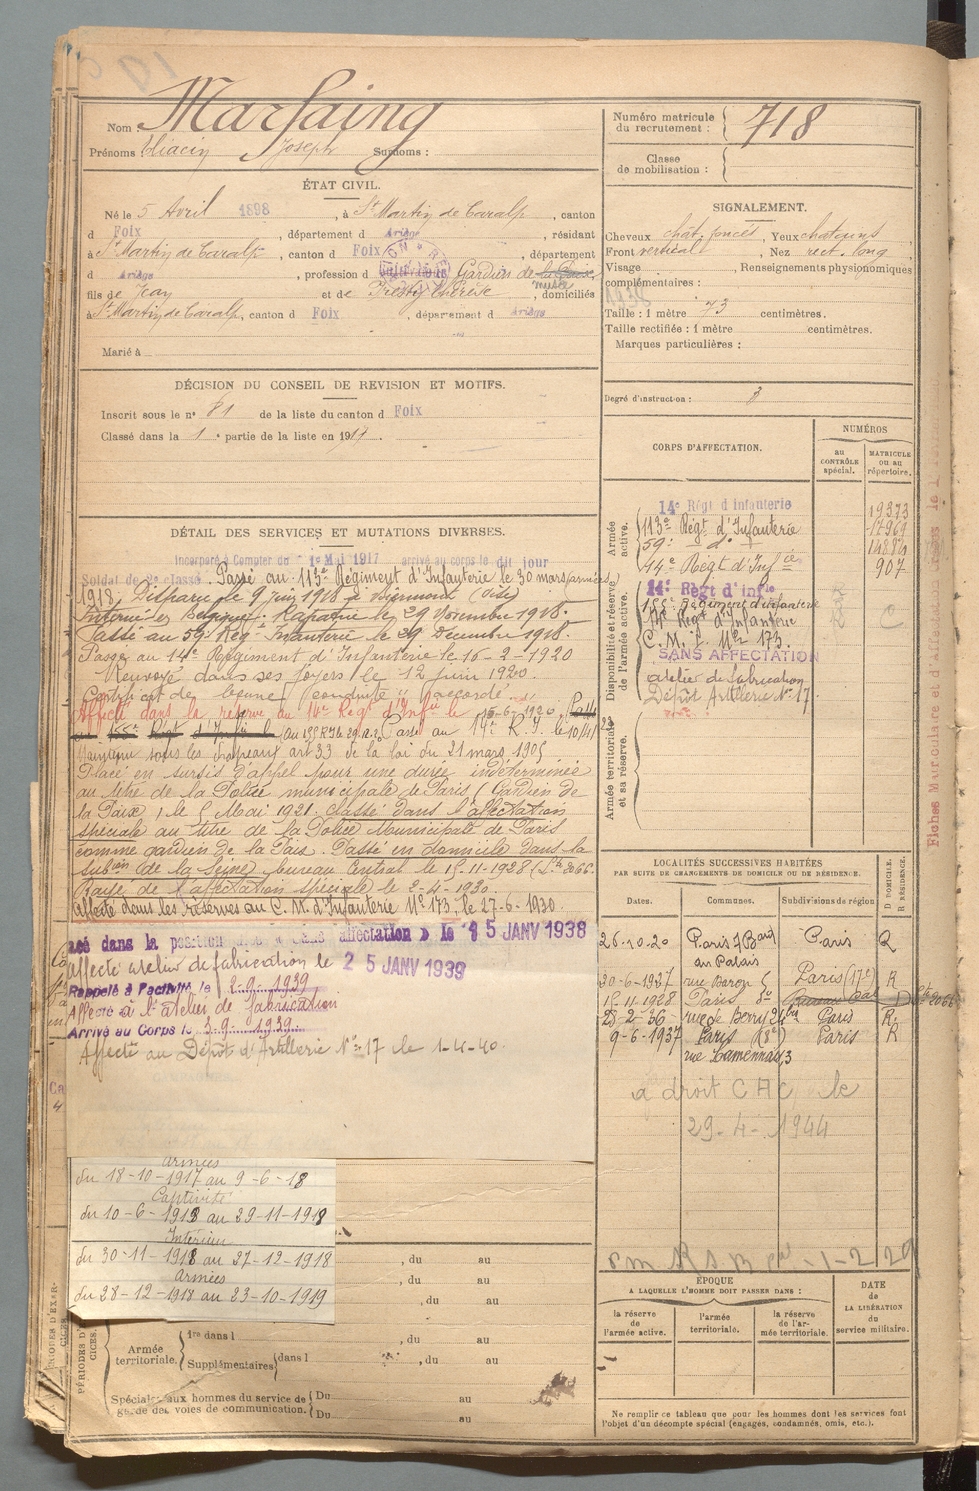 Nom : Marfaing
Prénoms Hiacin Joseph Surnoms :
Numéro matricule du recrutement : 718
Classe de mobilisation :
ÉTAT CIVIL.
Né le 5 Avril 1898, à St Martin de Caralp, canton
d Foix, département d Ariège, résidant
à St Martin de Caralp, canton d Foix, département
d Ariège, profession d Gardien de la Paix
fils de Jean et de Thérèse, domiciliés
à St Martin de Caralp, canton d Foix, département d Ariège
Marié à
SIGNALEMENT.
Cheveux chat. foncés, Yeux chatains
Front vertical, Nez rect. long
Visage , Renseignements physionomiques
complémentaires :
Taille : 1 mètre 73 centimètres.
Taille rectifiée : 1 mètre centimètres.
Marques particulières :
Degré d'instruction : 3
DÉCISION DU CONSEIL DE REVISION ET MOTIFS.
Inscrit sous le n° 81 de la liste du canton d Foix
Classé dans la 1e partie de la liste en 1917.
DÉTAIL DES SERVICES ET MUTATIONS DIVERSES.
Incorporé à Compter du 1er Mai 1917 arrivé au corps le dit jour
Soldat de 2e classe. Passé au 113e Régiment d'Infanterie le 30 mars (armées)
1918. Disparu le 9 juin 1918 à (Oise)
Interné en Belgique. Rapatrié le 29 Novembre 1918.
Passé au 59e Reg. Infanterie le 29 Décembre 1918.
Passé au 14e Régiment d'Infanterie le 16-2-1920
Renvoyé dans ses foyers le 12 juin 1920
Certificat de bonne conduite "accordé"
Affecté dans la réserve au 14e Regt d'Infie le 15-6-1920. Passé
au 155e Regt d'Infie le Passé au 14e R.I. le
Maintenu sous les drapeaux art 33 de la loi du 21 mars 1905
Placé en sursis d'appel pour une durée indéterminée
au titre de la Police municipale de Paris (Gardien de
la Paix) le 5 Mai 1921. Classé dans l'affectation
spéciale au titre de la Police Municipale de Paris
comme gardien de la Paix. Passé en domicile dans la
subon de la Seine bureau Central le 15-11-1928
Rayé de l'affectation spéciale le 2-4-1930.
Affecté dans les réserves au C. M. d'Infanterie No 173, le 27-6-1930.
acé dans la position dite « sans affectation » le 15 JANV 1938
Affecté atelier de fabrication le 25 JANV 1939
Rappelé à l'activité le 2.9.1939
Affecté à l'atelier de fabrication
Arrivé au Corps le 3.9.1939
Affecté au Dépôt d'Artillerie No 17 le 1-4-40.
CORPS D'AFFECTATION.
NUMÉROS
au CONTRÔLE spécial.
MATRICULE ou au répertoire.
Armée active.
14e Régt d infanterie 19373
113e Régt d'Infanterie 17969
59e do 14884
14e Regt d'Infie 907
Disponibilité et réserve de l'armée active.
14e Regt d'infie
155e Régiment d'infanterie
14e Regt d'Infanterie
C. M. I. No 173.
SANS AFFECTATION
atelier de fabrication
Dépôt Artillerie No 17
Armée territoriale et sa réserve.
LOCALITÉS SUCCESSIVES HABITÉES
PAR SUITE DE CHANGEMENTS DE DOMICILE OU DE RÉSIDENCE.
Dates. Communes. Subdivisions de région D DOMICILE. R RÉSIDENCE.
26-10-20 Paris 7 Bard du Palais Paris R
30-6-1927 rue Baron Paris (17e) R
15-11-1928 Paris Bureau Cal D
2-36 rue de Berry Paris R
9-6-1937 Paris (8e) Paris R
rue Lamennais, 3
a droit CAC le
29-4-1944
Armées
du 18-10-1917 au 9-6-18
Captivité
du 10-6-1918 au 29-11-1918
Intérieur
du 30-11-1918 au 27-12-1918
Armées
du 28-12-1918 au 23-10-1919
, du au
, du au
, du au
PÉRIODES D'EXERCICES.
Armée territoriale.
1re dans l , du au
Supplémentaires dans l , du au
Spéciales aux hommes du service de garde des voies de communication.
Du au
Du au
ÉPOQUE
A LAQUELLE L'HOMME DOIT PASSER DANS :
la réserve de l'armée active.
l'armée territoriale.
la réserve de l'armée territoriale.
DATE de LA LIBÉRATION du service militaire.
Ne remplir ce tableau que pour les hommes dont les services font
l'objet d'un décompte spécial (engagés, condamnés, omis, etc.).